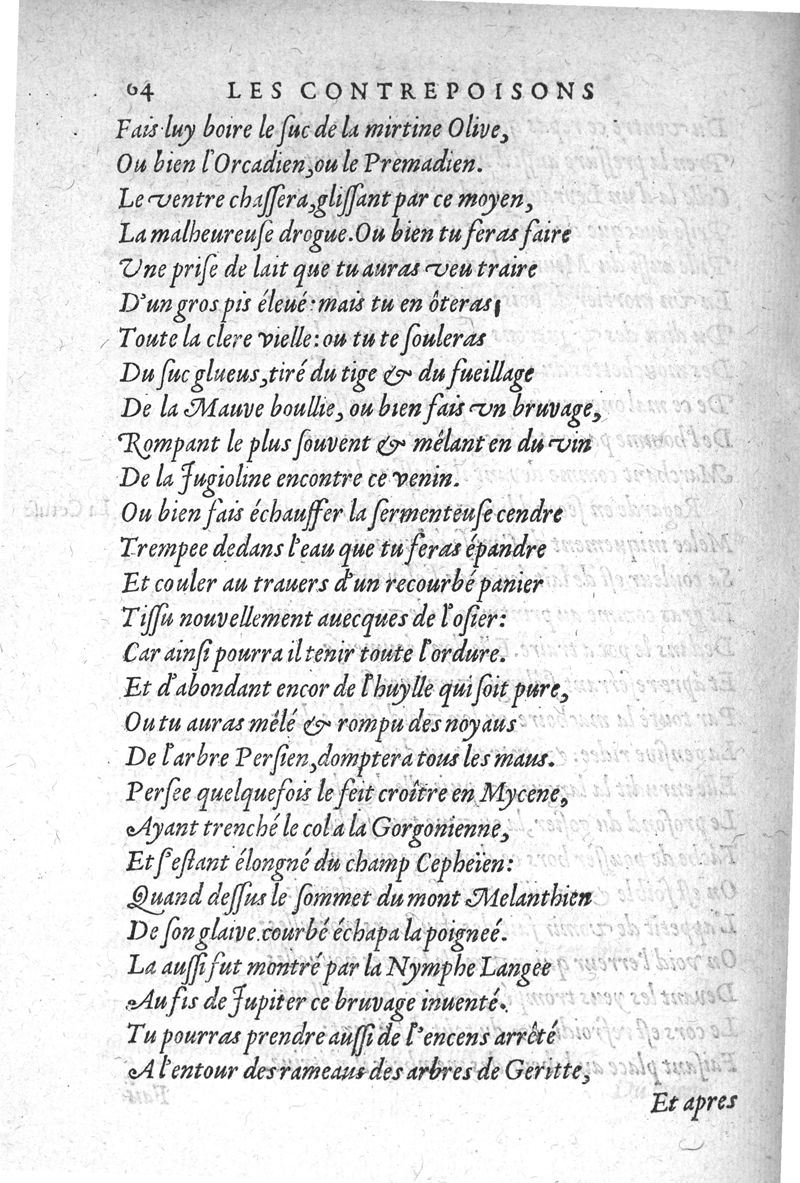 64 LES CONTREPOISONS
Fais luy boire le ſuc de la mirtine Olive,
Ou bien l'Orcadien, ou le Premadien.
Le ventre chaſſera, gliſſant par ce moyen,
La malheureuſe drogue. Ou bien tu feras faire
Une priſe de lait que tu auras veu traire
D'un gros pis éleué: mais tu en ôteras,
Toute la clere vielle: ou tu te ſouleras
Du ſuc glueus, tiré du tige & du fueillage
De la Mauve boullie, ou bien fais vn bruvage,
Rompant le plus ſouvent & mêlant en du vin
De la Jugioline encontre ce venin.
Ou bien fais échauffer la ſermenteuſe cendre
Trempee dedans l'eau que tu feras épandre
Et couler au trauers d'un recourbé panier
Tiſſu nouvellement auecques de l'oſier:
Car ainſi pourra il tenir toute l'ordure.
Et d'abondant encor de l'huylle qui ſoit pure,
Ou tu auras mêlé & rompu des noyaus
De l'arbre Perſien, domptera tous les maus.
Perſee quelquefois le feit croître en Mycene,
Ayant trenché le col a la Gorgonienne,
Et ſ'eſtant élongné du champ Cepheïen:
Quand deſſus le ſommet du mont Melanthien
De ſon glaive courbé échapa la poigneé.
La auſſi fut montré par la Nymphe Langee
Au fis de Jupiter ce bruvage inuenté.
Tu pourras prendre auſſi de l'encens arrêté
A l'entour des rameaus des arbres de Geritte,
Et apres